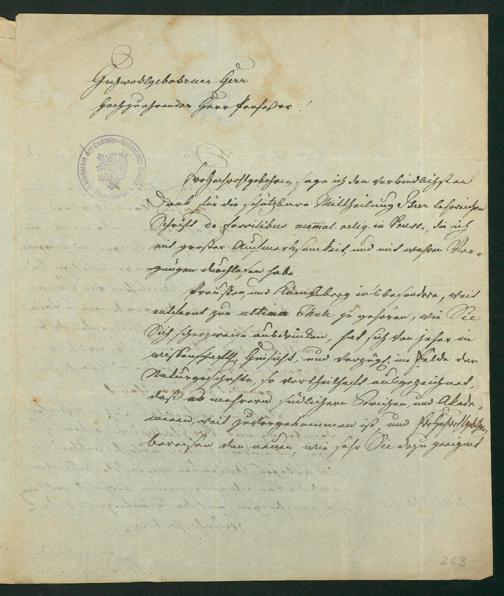 Hochwohlgebohrner Herr
Hochzuehrender Herr Professor!
Ew. Hochwohlgebohren, sage ich den verbindlichsten
Dank für die schätzbare Mittheilung Ihrer lehrreichen
Schrift de fossilibus mammal. reliq. in Pruss., die ich
mit großer Aufmerksamkeit, und mit wahrem Ver-
gnügen durchlesen habe.
Preußen, und Königsberg insbesondere, weit
entfernt zur ultima Thule zu gehören, wie Sie
Sich scherzweise ausdrücken, hat sich von jeher in
wissenschaftl. Hinsicht, und vorzügl. im Felde der
Naturgeschichte, so vortheilhaft ausgezeichnet,
daß es mehrern südlichern Strichen und Akade-
mieen, weit zuvorgekommen ist und Ew. Hochwohlgeb.
beweisen von neuem wie sehr Sie dazu geeignet
263